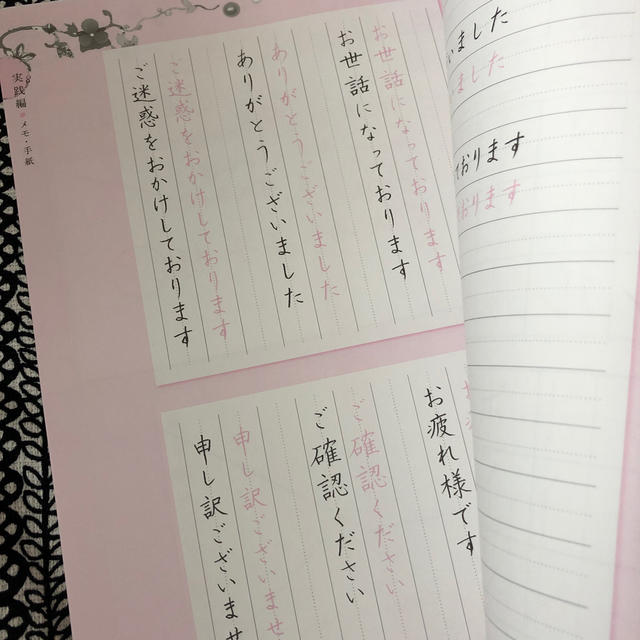 お世話になっております
お世話になっております
ありがとうございました
ありがとうございました
ご迷惑をおかけしております
ご迷惑をおかけしております
実践編 メモ・手紙
お疲れ様です
ご確認ください
ご確認ください
申し訳ございませ
申し訳ございませ
いました
ました
おります
おります